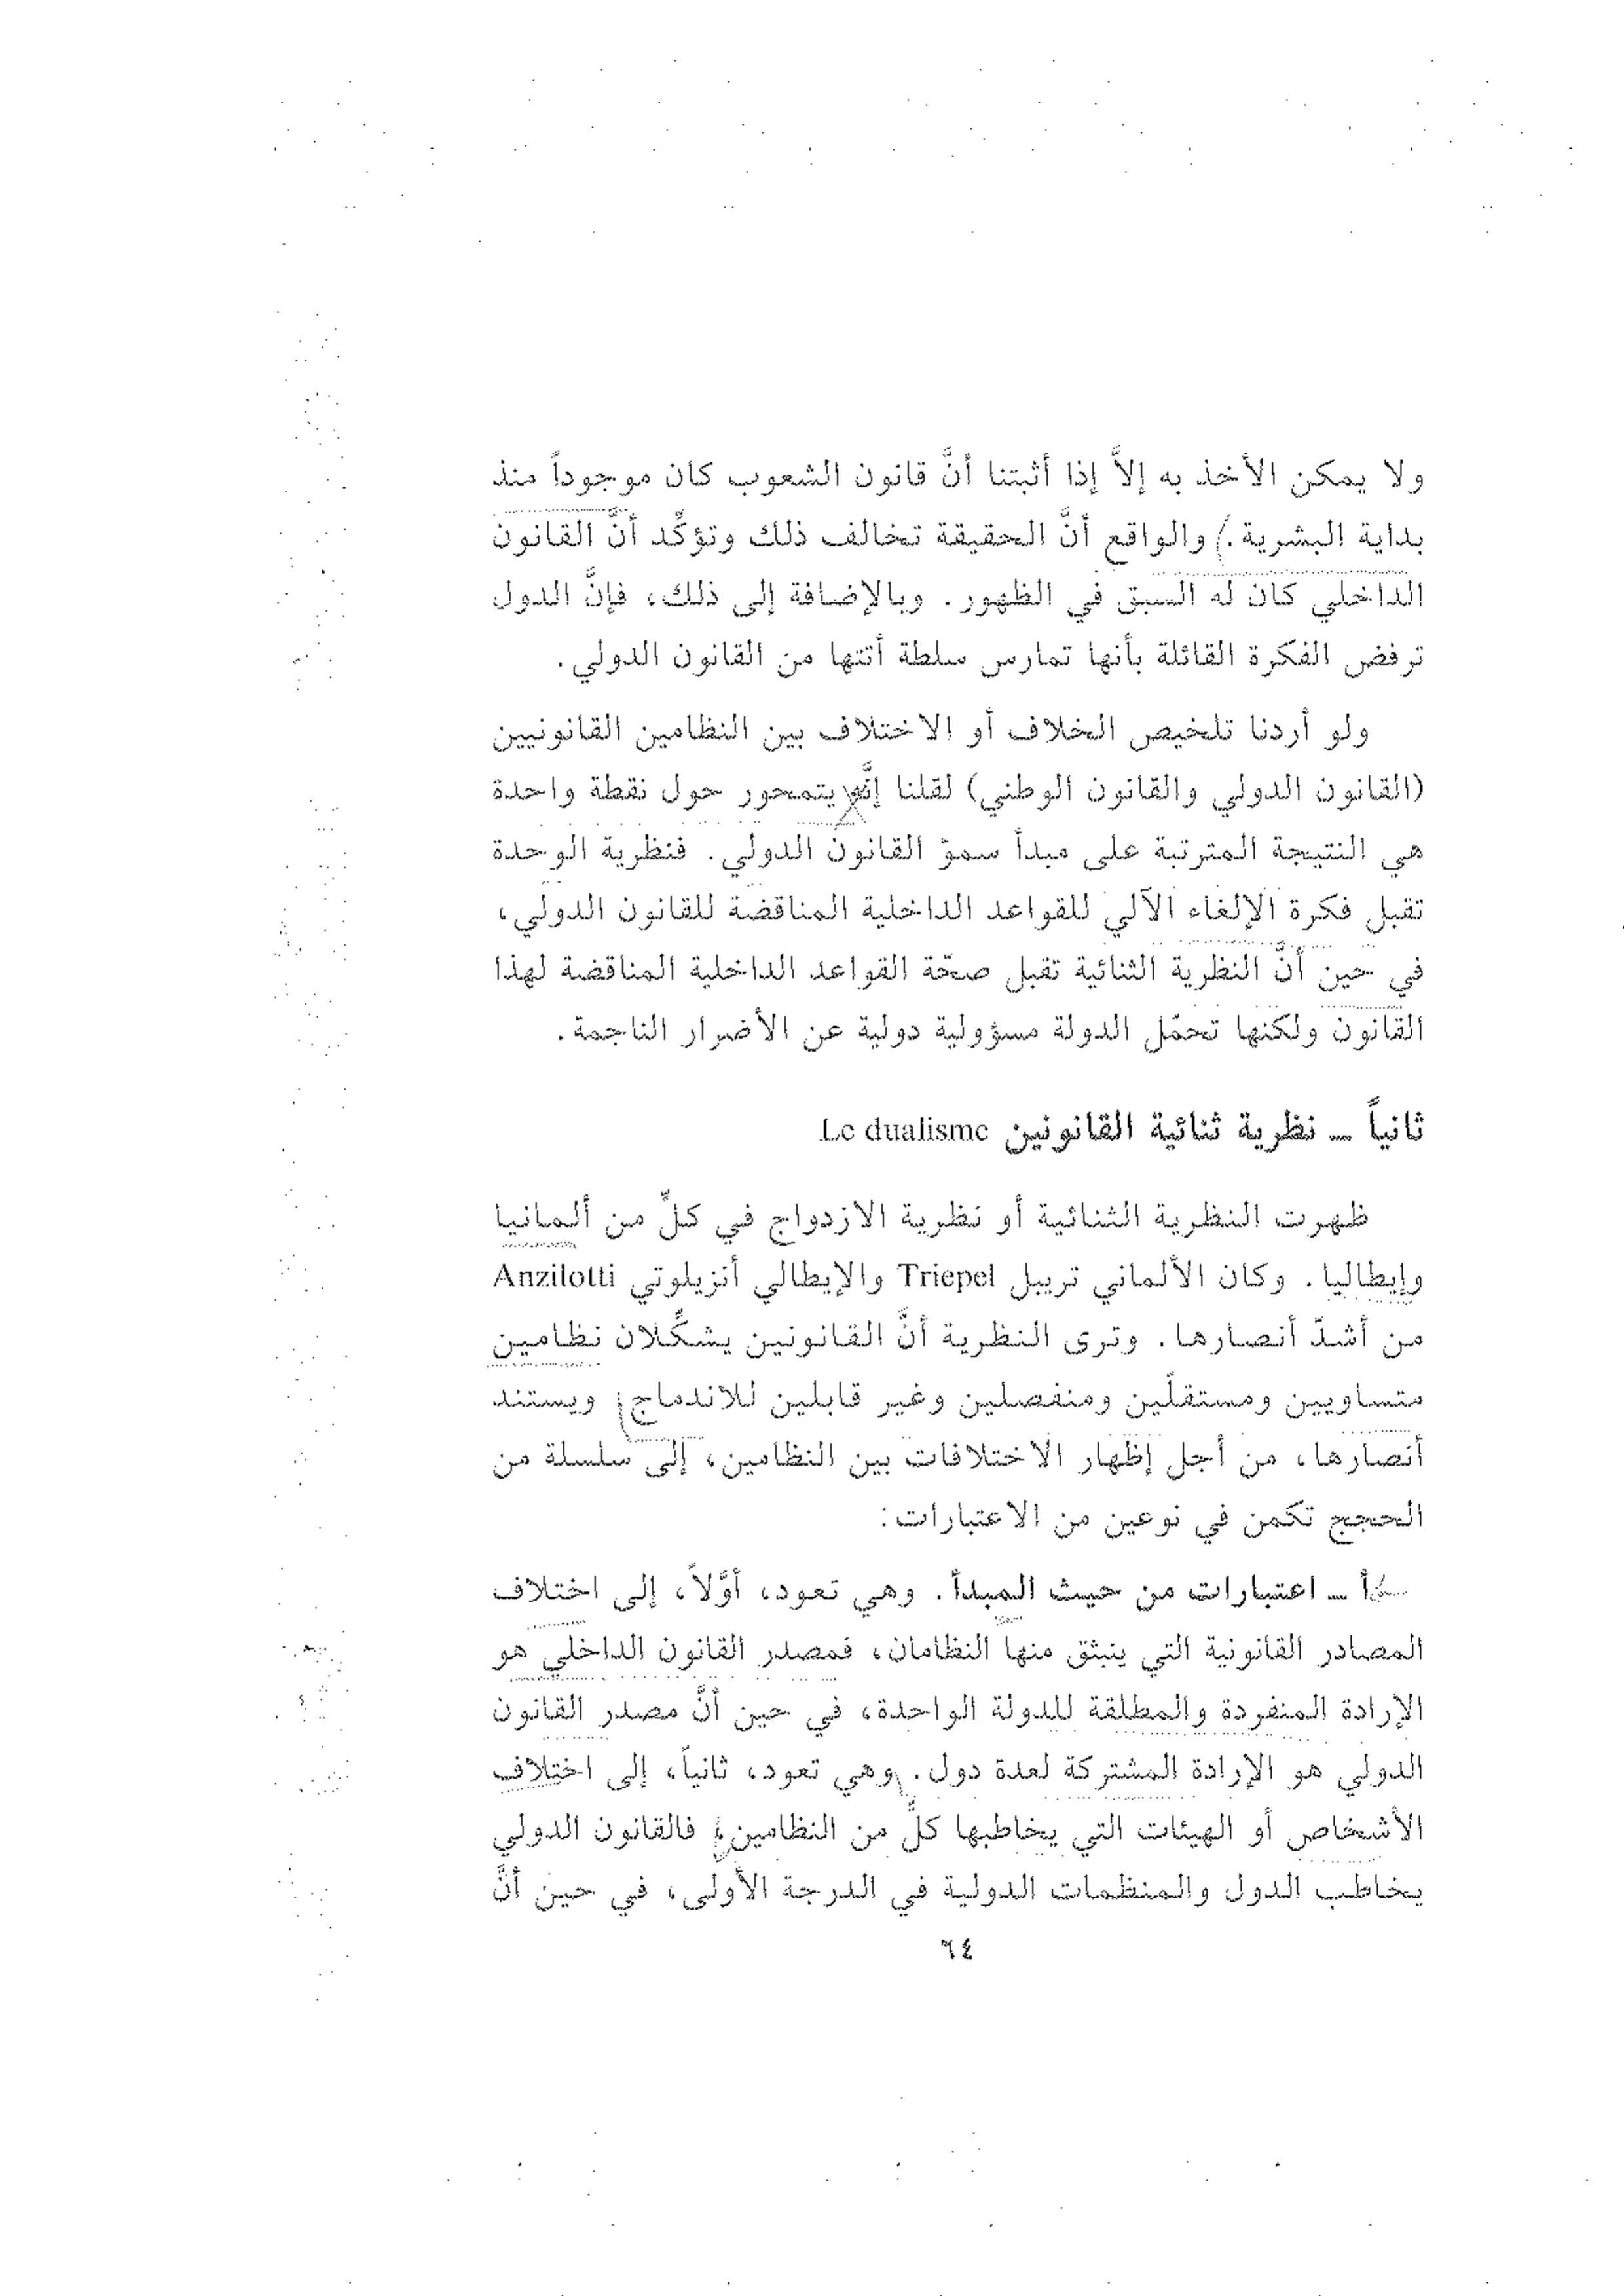 ولا يمكن الأخذ به إلاَّ إذا أثبتنا أنَّ قانون الشعوب كان موجوداً منذ
بداية البشرية. والواقع أنَّ الحقيقة تخالف ذلك وتؤكِّد أنَّ القانون
الداخلي كان له السبق في الظهور. وبالإضافة إلى ذلك، فإنَّ الدول
ترفض الفكرة القائلة بأنها تمارس سلطة أتتها من القانون الدولي.
ولو أردنا تلخيص الخلاف أو الاختلاف بين النظامين القانونيين
(القانون الدولي والقانون الوطني) لقلنا إنَّه يتمحور حول نقطة واحدة
هي النتيجة المترتبة على مبدأ سموّ القانون الدولي. فنظرية الوحدة
تقبل فكرة الإلغاء الآلي للقواعد الداخلية المناقضة للقانون الدولي،
في حين أنَّ النظرية الثنائية تقبل صحّة القواعد الداخلية المناقضة لهذا
القانون ولكنها تحمّل الدولة مسؤولية دولية عن الأضرار الناجمة.
ثانياً ـ نظرية ثنائية القانونين Le dualisme
ظهرت النظرية الثنائية أو نظرية الازدواج في كلِّ من ألمانيا
وإيطاليا. وكان الألماني تريبل Triepel والإيطالي أنزيلوتي Anzilotti
من أشدّ أنصارها. وترى النظرية أنَّ القانونين يشكِّلان نظامين
متساويين ومستقلّين ومنفصلين وغير قابلين للاندماج. ويستند
أنصارها، من أجل إظهار الاختلافات بين النظامين، إلى سلسلة من
الحجج تكمن في نوعين من الاعتبارات:
أ ـ اعتبارات من حيث المبدأ. وهي تعود، أوَّلاً، إلى اختلاف
المصادر القانونية التي ينبثق منها النظامان، فمصدر القانون الداخلي هو
الإرادة المنفردة والمطلقة للدولة الواحدة، في حين أنَّ مصدر القانون
الدولي هو الإرادة المشتركة لعدة دول. وهي تعود، ثانياً، إلى اختلاف
الأشخاص أو الهيئات التي يخاطبها كلٌّ من النظامين، فالقانون الدولي
يخاطب الدول والمنظمات الدولية في الدرجة الأولى، في حين أنَّ
٦٤